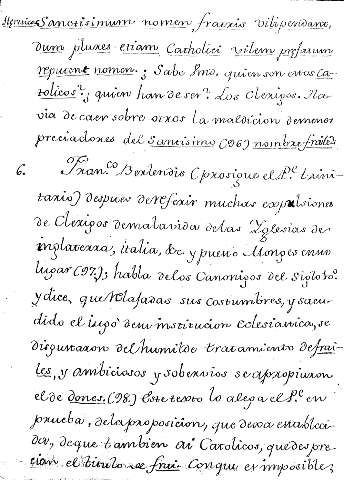 Sanctisimum nomen fratris vilipendant,
dum plures etiam Catholici vilem prorsum
reputent nomen.; Sabe Ymo. quien son esos Ca-
tolicos?; quien han de ser? Los Clerigos. Ha-
via de caer sobre otros la maldicion de menos
preciadores del Santisimo (96) nombre fraile.
6. Fran.co Berlendis (prosigue el P.e trini-
tario) despues de referir muchas expulsiones
de Clerigos de mala vida de las Yglesias de
inglaterra, italia, &c. y puesto Monges en su
lugar (97.); habla de los Canonigos del Siglo 10.o
y dice, que relajadas sus costumbres, y sacu-
dido el iugo de su institucion eclesiastica, se
disgustaron del humilde tratamiento de frai-
les, y ambiciosos y sobervios se apropiaron
el de dones. (98.) Este texto lo alega el P.e en
prueba, de la proposicion, que dexa estableci-
da, de que tambien ai Catolicos, que despre-
cian el titulo de frai. Con que es imposible,